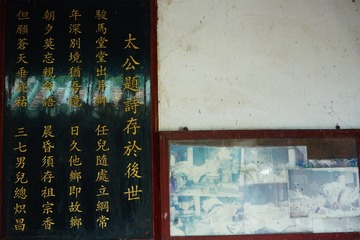 太公題詩存於後世
駿馬堂堂出異鄉 任兒隨處立綱常
年深別境猶吾境 日久他鄉即故鄉
朝夕莫忘親命語 晨昏須存祖宗香
但願蒼天垂庇祐 三七男兒總熾昌